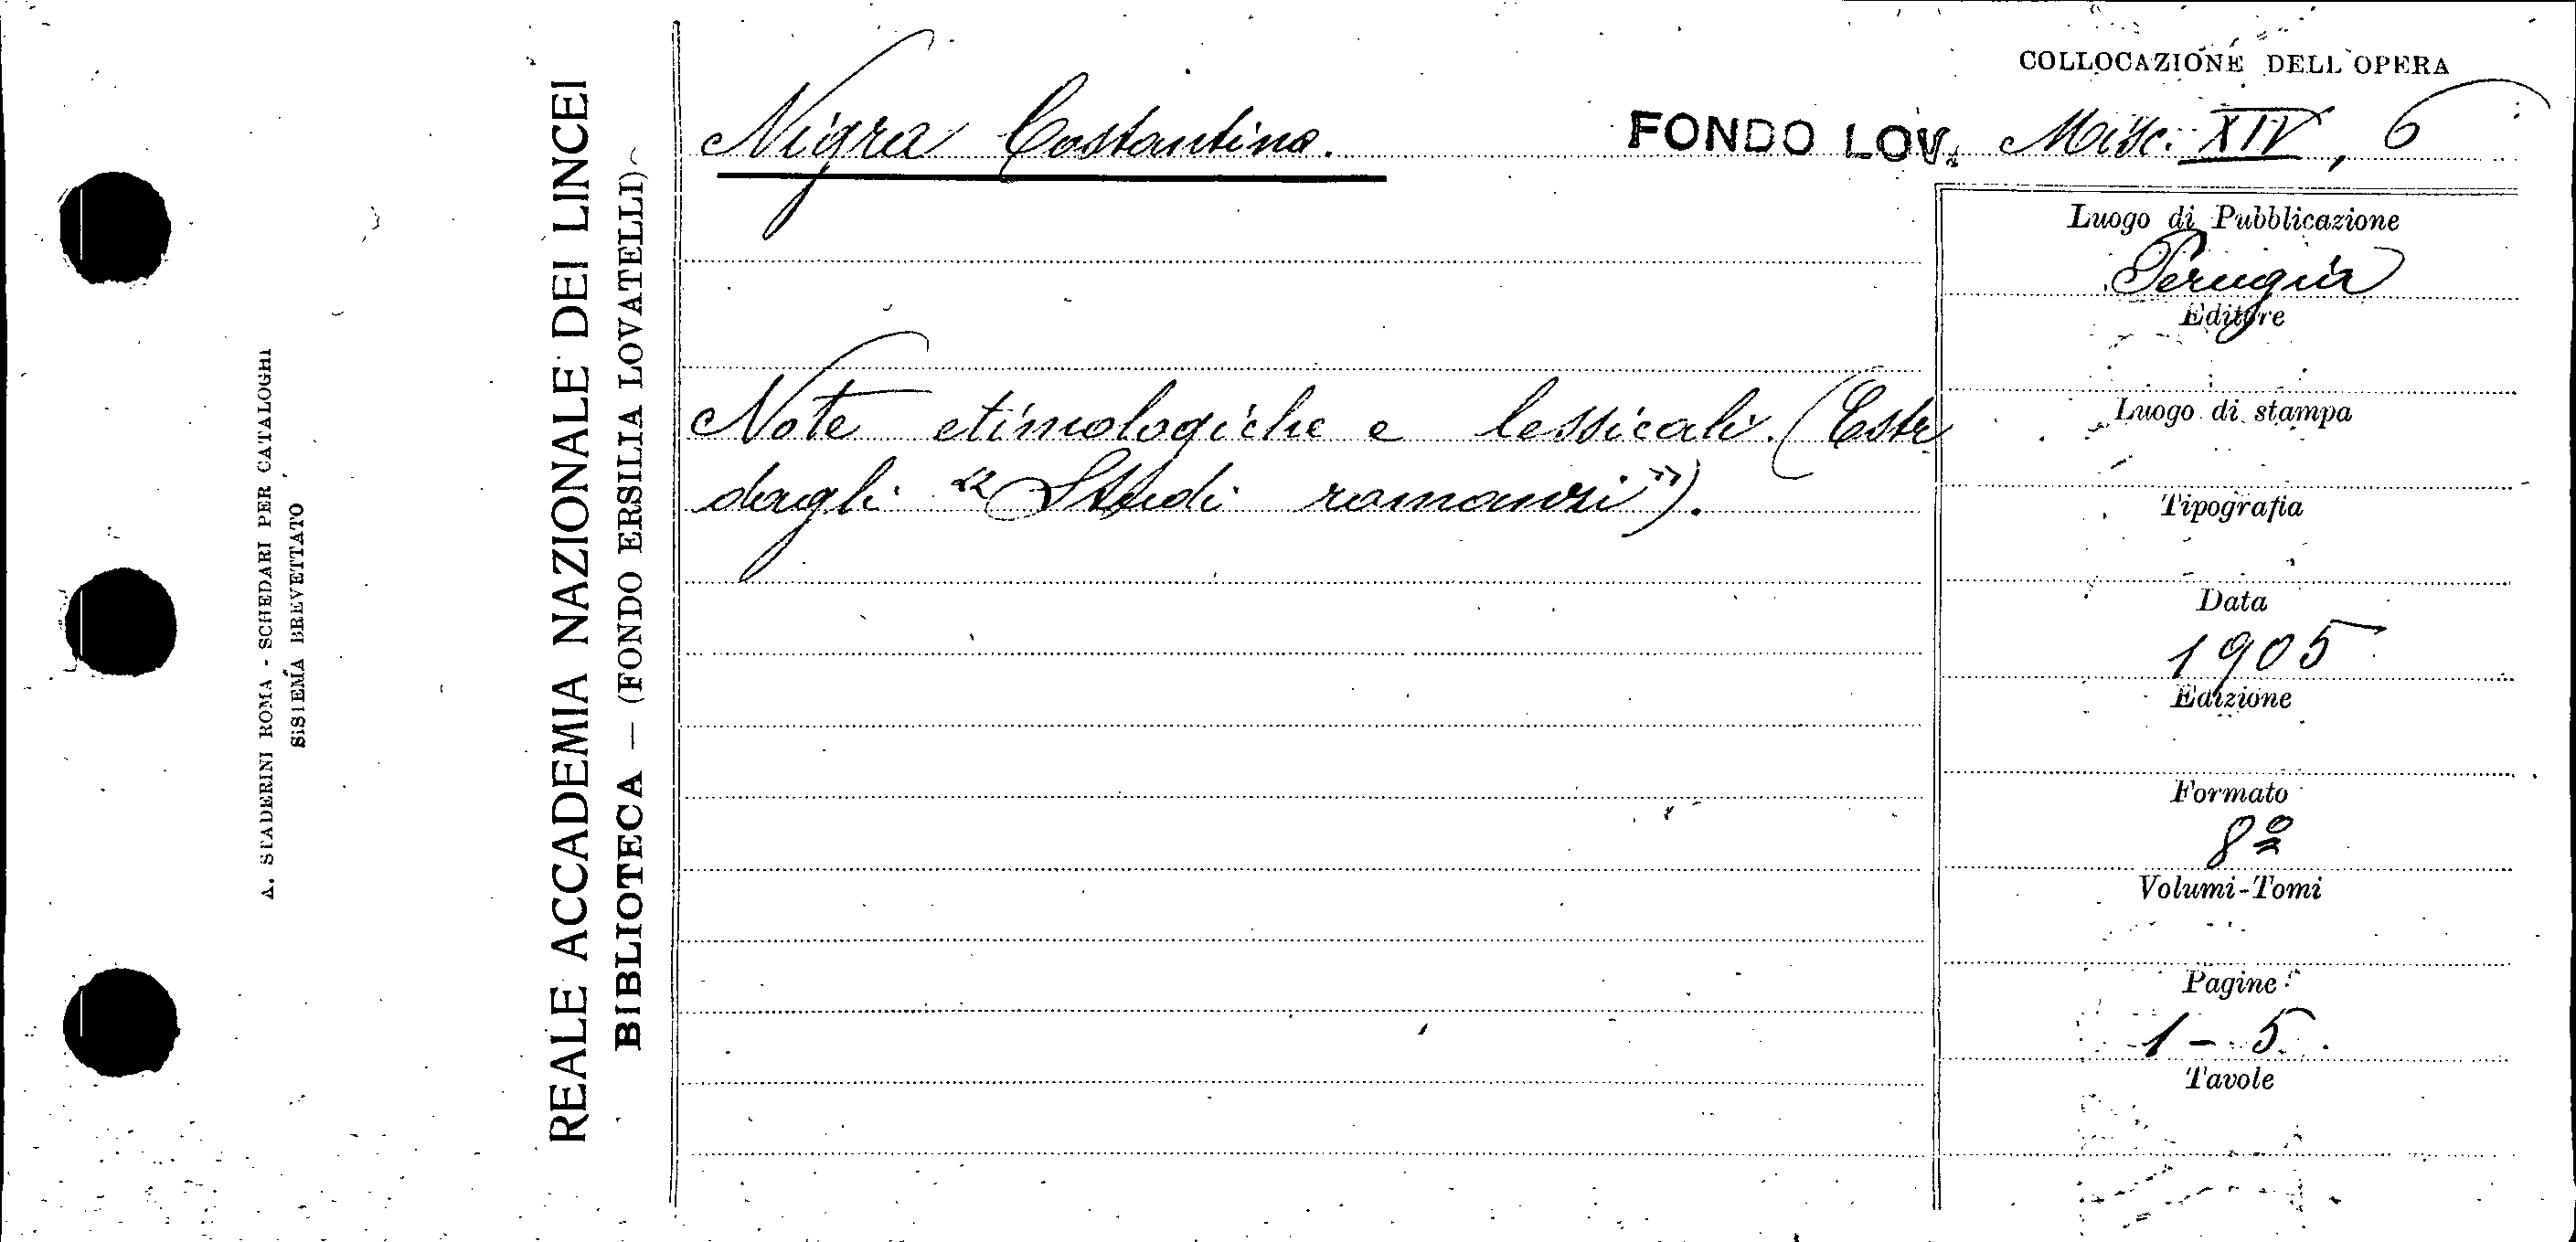 COLLOCAZIONE DELL'OPERA
Nigra Costantino.
FONDO LOV. Misc. XIV, 6
Note etimologiche e lessicali. (Estr.
dagli "Studi romanzi").
Luogo di Pubblicazione
Perugia
Editore
Luogo di stampa
Tipografia
Data
1905
Edizione
Formato
8º
Volumi-Tomi
Pagine
1-5
Tavole
REALE ACCADEMIA NAZIONALE DEI LINCEI
BIBLIOTECA — (FONDO ERSILIA LOVATELLI)
A. STADERINI ROMA - SCHEDARI PER CATALOGHI
SISTEMA BREVETTATO